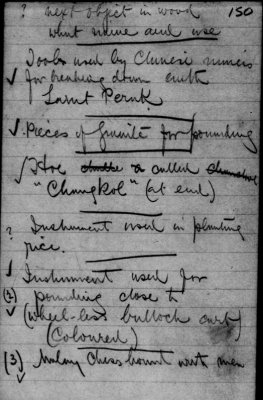 ? next object in wood 150
what name and use
Tools used by Chinese miners
✓ for breaking down earth
Saint Perak
✓ Pieces of granite for pounding
✓ Hoe or called
"Chungkol" (at end)
? Instrument used in planting
rice.
✓ Instrument used for
(2) pounding close to
✓ (wheel-less bullock cart)
(Coloured)
(3) Malay Chess board with men
✓